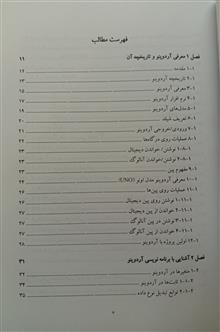 فهرست مطالب
فصل ۱ معرفی آردوینو و تاریخچه آن ۱۱
۱-۱ مقدمه ۱۲
۱-۲ تاریخچه آردوینو ۱۳
۱-۳ معرفی آردوینو
۱-۴ نرم افزار آردوینو
۱-۵ مدل‌های آردوینو
۱-۶ تعریف شیلد
۱-۷ ورودی/خروجی آردوینو
۱-۸ عملیات روی درگاه‌ها
۱-۸-۱ نوشتن/ خواندن دیجیتال
۱-۸-۲ نوشتن/خواندن آنالوگ
۱-۹ مفهوم پین
۱-۱۰ معرفی آردوینو مدل اونو (UNO)
۱-۱۱ عملیات روی پین‌ها
۱-۱۱-۱ نوشتن روی پین دیجیتال
۱-۱۱-۲ خواندن از پین دیجیتال
۱-۱۱-۳ نوشتن در پین آنالوگ
۱-۱۱-۴ خواندن از پین آنالوگ
۱-۱۲ اولین پروژه با آردوینو
فصل ۲ آشنایی با برنامه نویسی آردوینو ۳۱
۲-۱ متغیرها در آردوینو ۳۲
۲-۱-۱ ثابت‌ها در آردوینو
۲-۱-۲ توابع تبدیل نوع داده ۳۵
۷